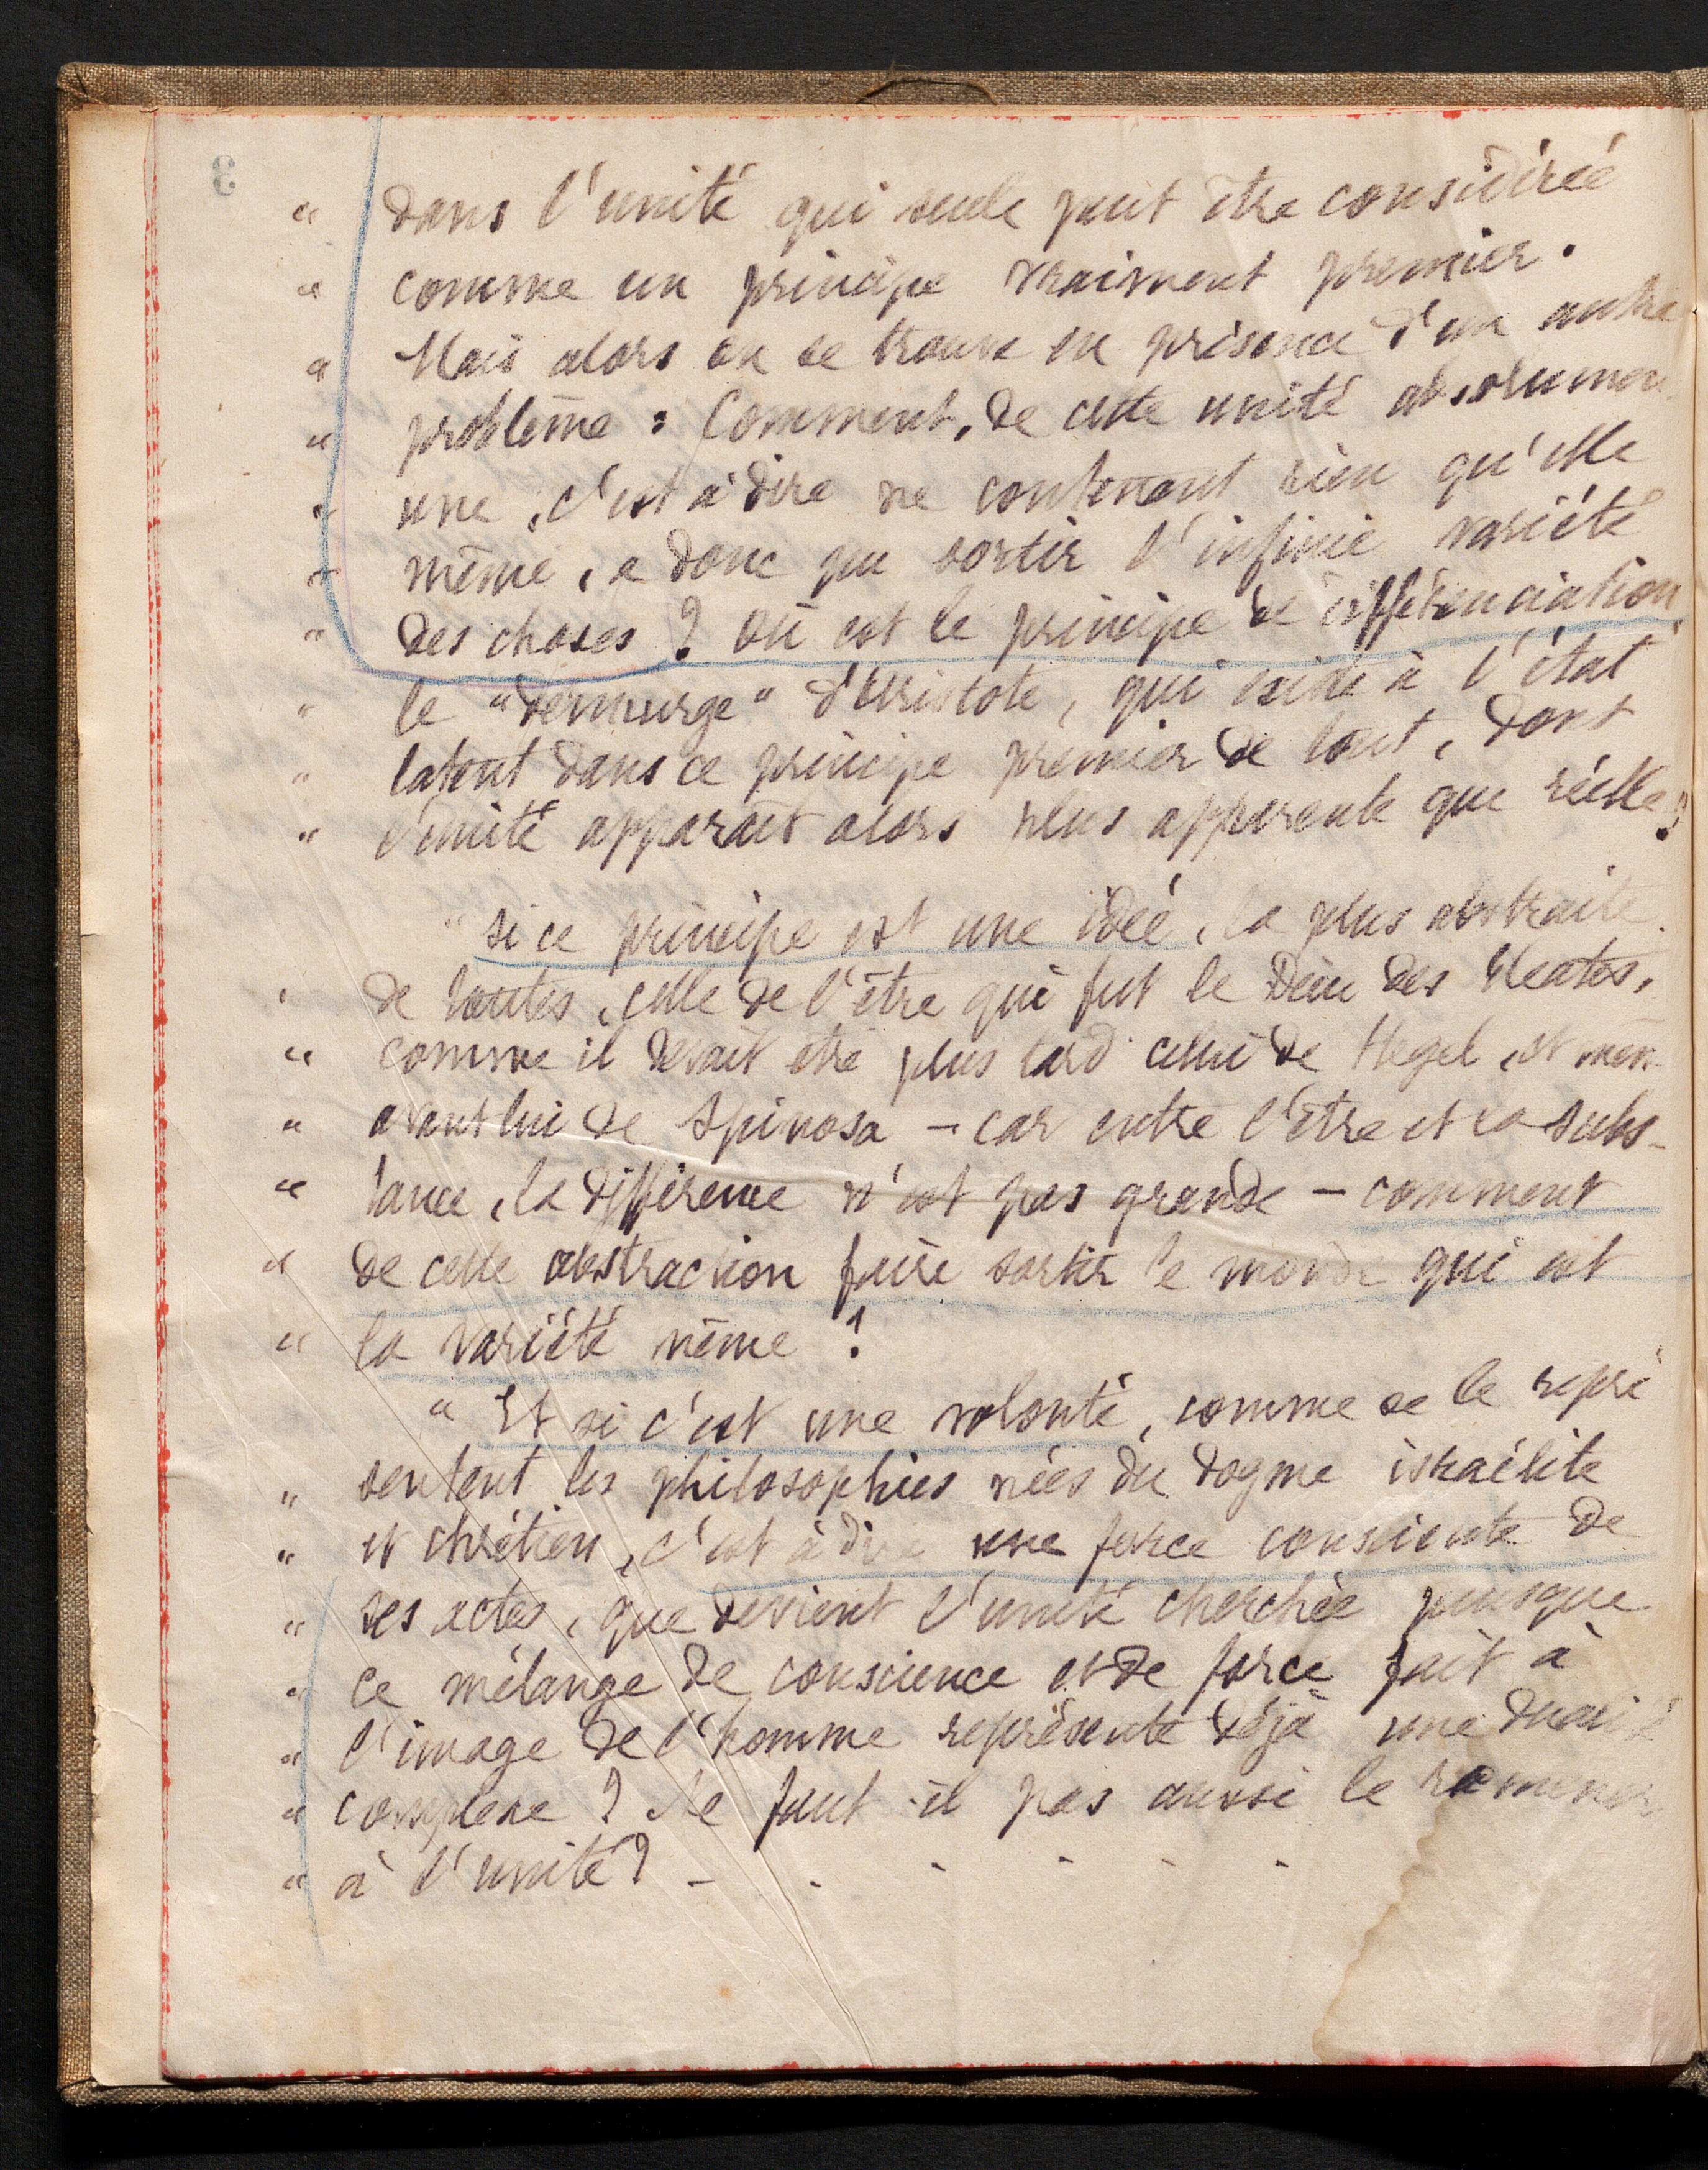 " dans l'unité qui seule peut être considérée
" comme un principe vraiment premier.
" Mais alors on se trouve en présence d'un autre
" problême : Comment, de cette unité absolumen
" une, c'est à dire ne contenant rien qu'elle
" même, a donc pu sortir l'infinie variété
" des choses ? où est le principe de différenciation
" le "démiurge" d'Aristote, qui existe à l'état
" latent dans ce principe premier de tout, dont
" l'unité apparaît alors plus apparente que réelle ?
" si ce principe est une idée, la plus abstraite
" de toutes, celle de l'être qui fut le Dieu des Eléates,
" comme il devait être plus tard celui de Hegel, et mêm
" avant lui de Spinosa – car entre l'être et la subs-
" tance, la différence n'est pas grande – comment
" de cette abstraction faire sortir le monde qui est
" la variété même ?
" Et si c'est une volonté, comme se le repré
" sentent les philosophies nées du dogme israélite
" et chrétien, c'est à dire une force consciente de
" ses actes, que devient l'unité cherchée puisque
" ce mélange de conscience et de force fait à
" l'image de l'homme représente déjà une dualité
" complexe ? Ne faut-il pas aussi le ramener
" à l'unité ? - . - - - -
3